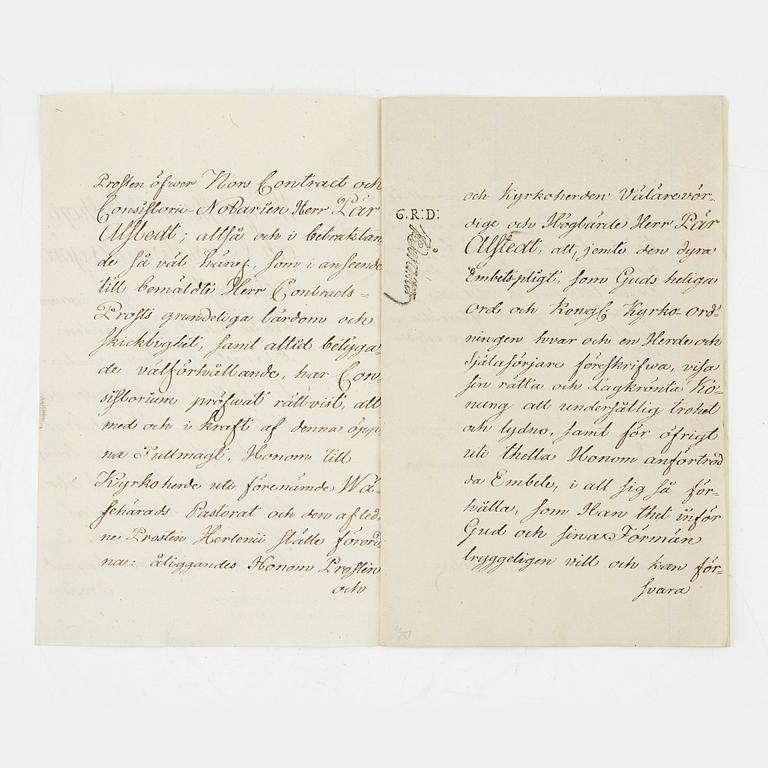 Prosten öfwer Nors Contract och
Consistorie-Notarien Herr Pär
Alstedt; altså och i betraktan
de så väl häraf, som i anseende
till bemäldte Herr Contracts=
Prosts grundeliga lärdom och
skickelighet, samt altid betyga-
de välförhållande, har Con-
sistorium pröfwat rättvist, att
med och i kraft af denna öpp-
na Fullmagt, Honom till
Kyrkoherde uti förenämde Wä-
sehärads Pastorat och den afled-
ne Prosten Hertenii ställe förord-
na: åliggandes Honom Prosten
och
G.R:D:
och Kyrkoherden Välärevör-
dige och Höglärde Herr Pär
Alstedt, att, jemte den dyra
Embets-pligt, som Guds heliga
Ord och Kongl. Kyrko-ord-
ningen hvar och en Herde och
Själasörjare föreskrifwa, visa
sin rätta och Lagkrönta Ko-
nung all undersåtlig trohet
och lydno, samt för öfrigt
uti thetta Honom anförtrod
da Embete, i all sig så för-
hålla, som Han thet inför
Gud och sina Förmän
tryggeligen vill och kan för-
svara